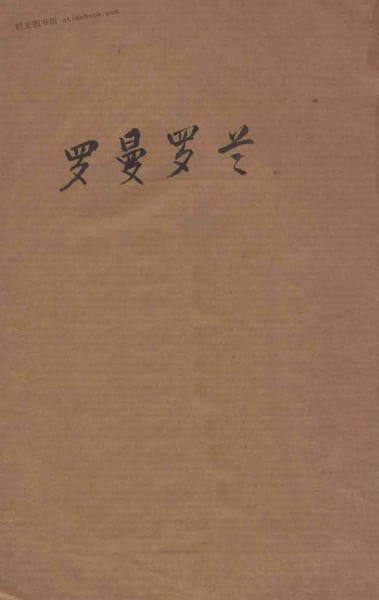 时光图书馆 atimebook.com
罗曼罗兰